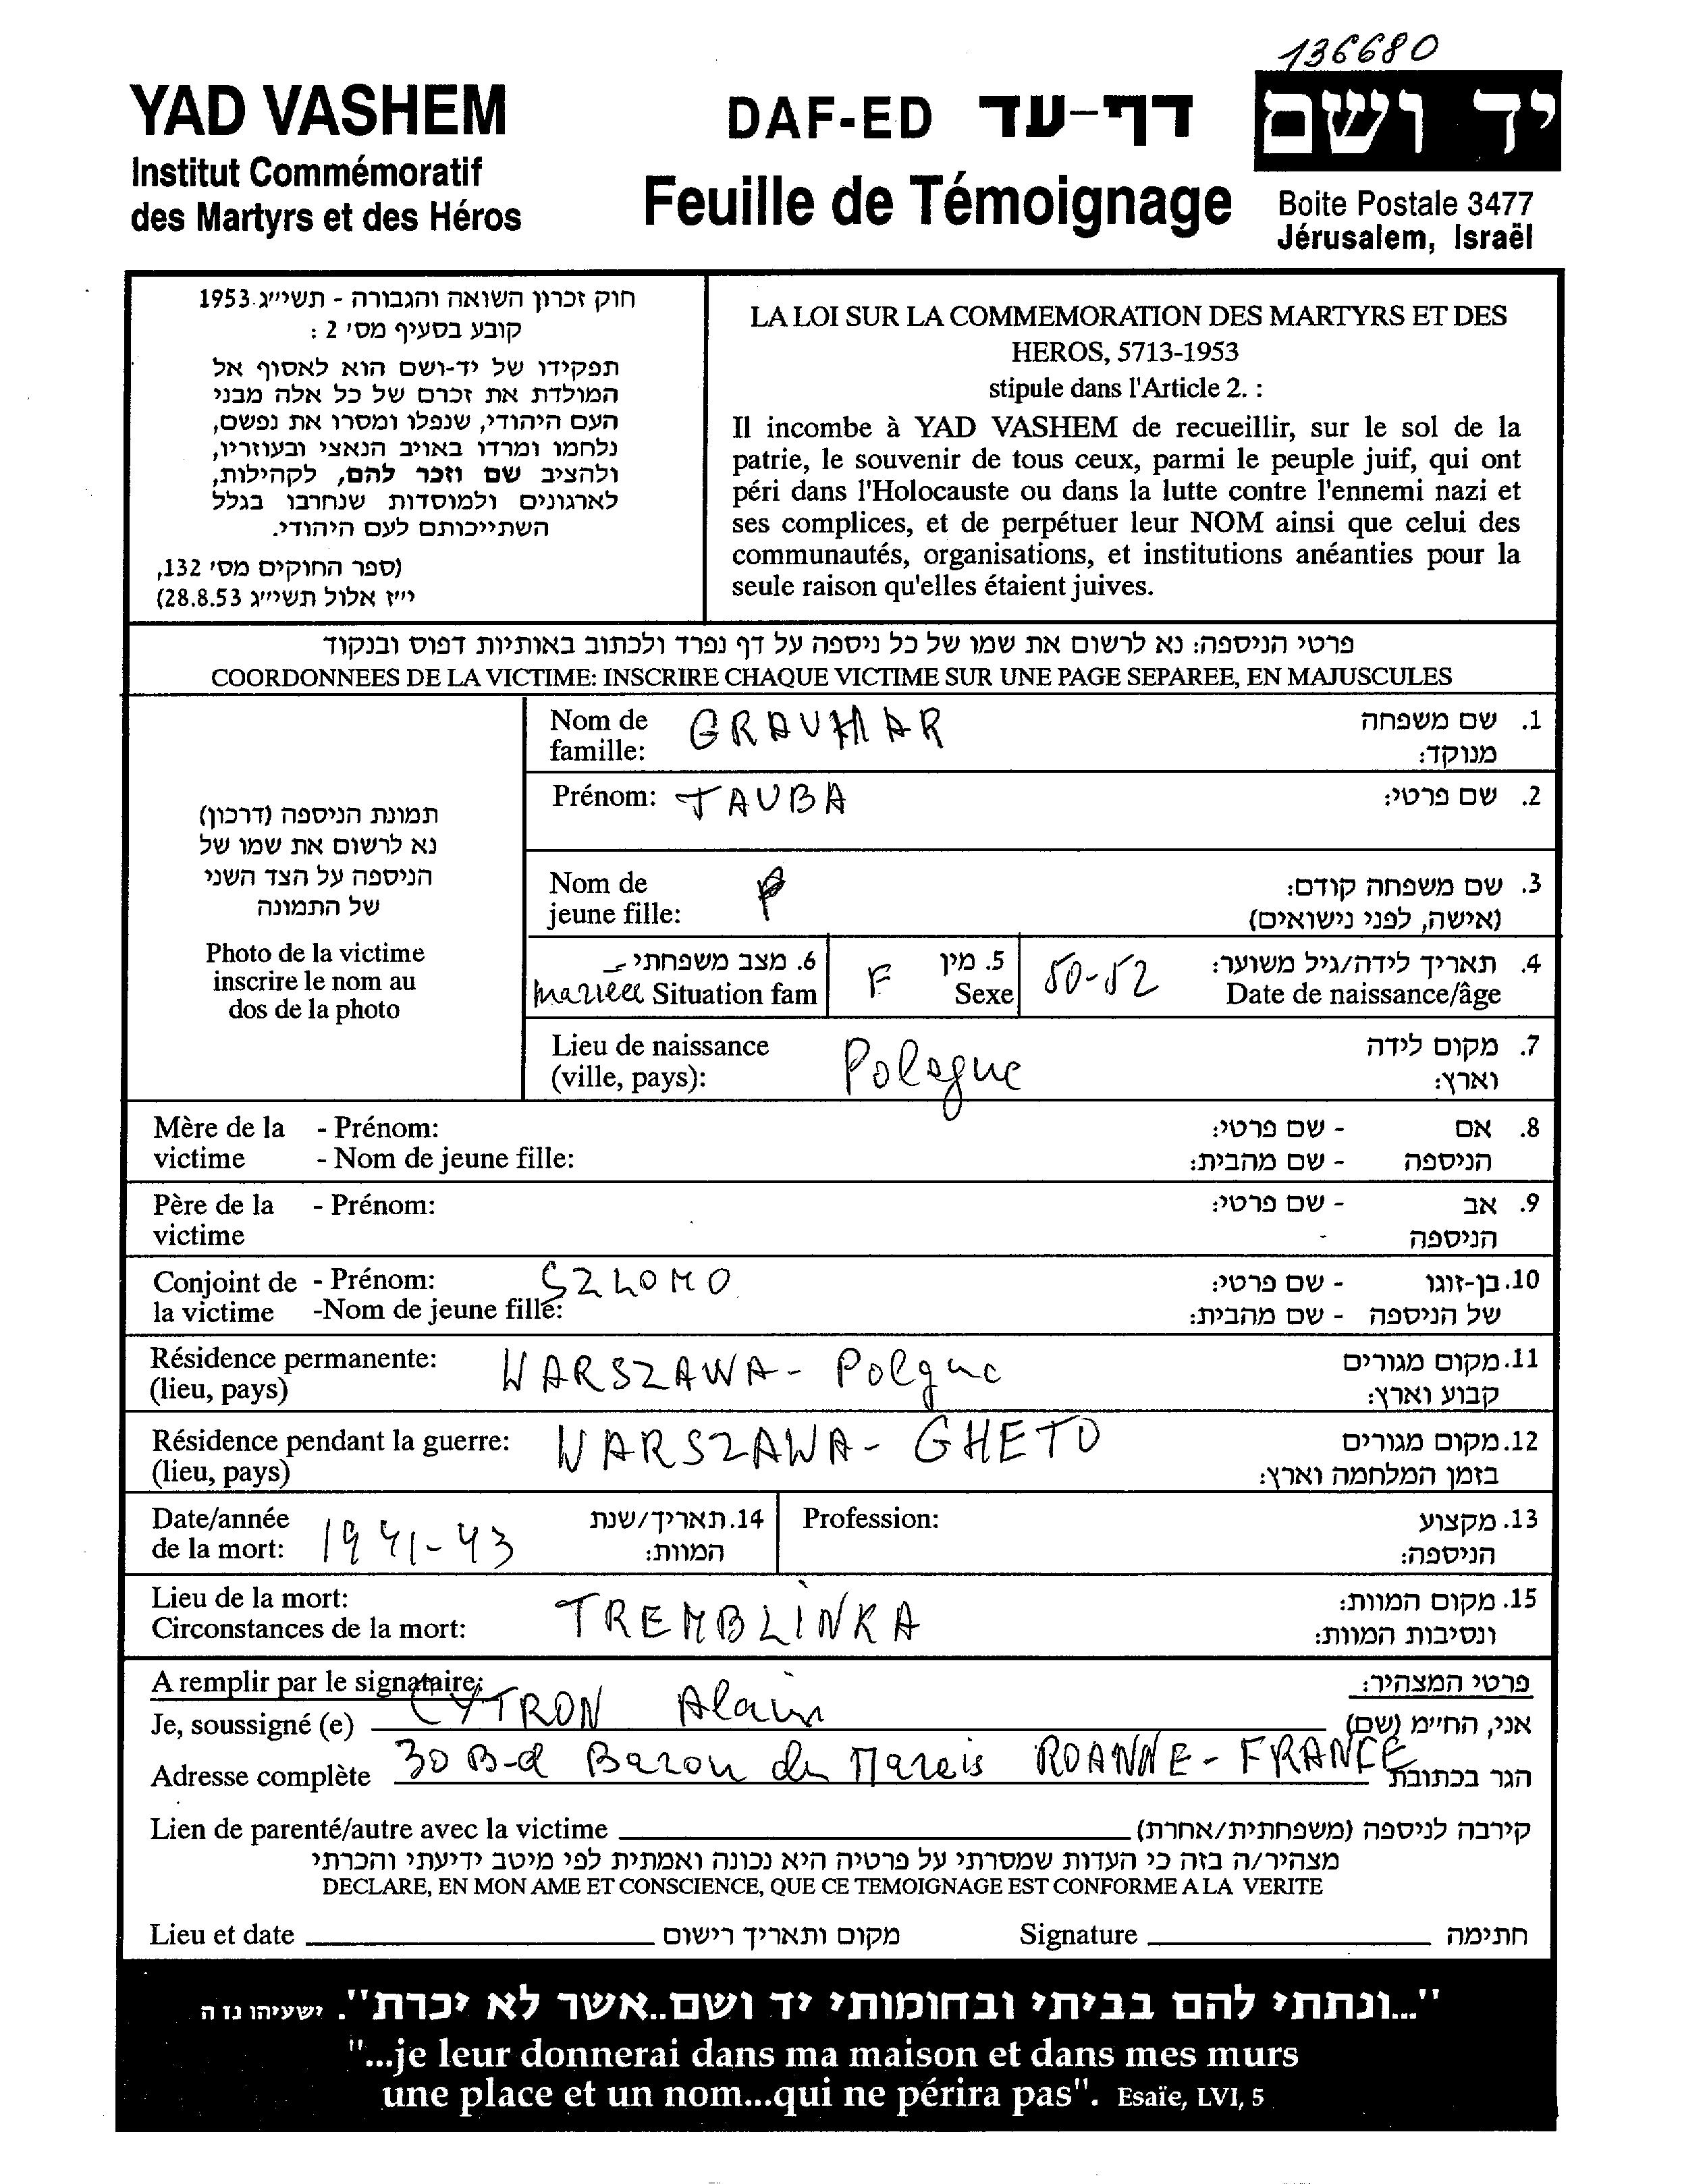 136680
YAD VASHEM
Institut Commémoratif
des Martyrs et des Héros
DAF-ED דף-עד
Feuille de Témoignage
יד ושם
Boite Postale 3477
Jérusalem, Israël
חוק זכרון השואה והגבורה - תשי״ג 1953
קובע בסעיף מס׳ 2 :
תפקידו של יד-ושם הוא לאסוף אל
המולדת את זכרם של כל אלה מבני
העם היהודי, שנפלו ומסרו את נפשם,
נלחמו ומרדו באויב הנאצי ובעוזריו,
ולהציב שם וזכר להם, לקהילות,
לארגונים ולמוסדות שנחרבו בגלל
השתייכותם לעם היהודי.
(ספר החוקים מס׳ 132,
י״ז אלול תשי״ג 28.8.53)
LA LOI SUR LA COMMEMORATION DES MARTYRS ET DES
HEROS, 5713-1953
stipule dans l'Article 2. :
Il incombe à YAD VASHEM de recueillir, sur le sol de la
patrie, le souvenir de tous ceux, parmi le peuple juif, qui ont
péri dans l'Holocauste ou dans la lutte contre l'ennemi nazi et
ses complices, et de perpétuer leur NOM ainsi que celui des
communautés, organisations, et institutions anéanties pour la
seule raison qu'elles étaient juives.
פרטי הניספה: נא לרשום את שמו של כל ניספה על דף נפרד ולכתוב באותיות דפוס ובנקוד
COORDONNEES DE LA VICTIME: INSCRIRE CHAQUE VICTIME SUR UNE PAGE SEPAREE, EN MAJUSCULES
תמונת הניספה (דרכון)
נא לרשום את שמו של
הניספה על הצד השני
של התמונה
Photo de la victime
inscrire le nom au
dos de la photo
Nom de famille: GRAUMAR 1. שם משפחה מנוקד:
Prénom: TAUBA 2. שם פרטי:
Nom de jeune fille: 3. שם משפחה קודם:
(אישה, לפני נישואים)
6. מצב משפחתי
mariée Situation fam
F 5. מין Sexe
50-52 4. תאריך לידה/גיל משוער:
Date de naissance/âge
Lieu de naissance (ville, pays): Pologne 7. מקום לידה וארץ:
Mère de la victime - Prénom: - שם פרטי: 8. אם הניספה
- Nom de jeune fille: - שם מהבית:
Père de la victime - Prénom: - שם פרטי: 9. אב הניספה
Conjoint de - Prénom: SZLOMO - שם פרטי: 10. בן-זוגו
la victime -Nom de jeune fille: - שם מהבית: של הניספה
Résidence permanente: WARSZAWA - Polgne 11. מקום מגורים
(lieu, pays) קבוע וארץ:
Résidence pendant la guerre: WARSZAWA - GHETO 12. מקום מגורים
(lieu, pays) בזמן המלחמה וארץ:
Date/année de la mort: 1941-43 14. תאריך/שנת המוות:
Profession: 13. מקצוע הניספה:
Lieu de la mort: TREMBLINKA 15. מקום המוות:
Circonstances de la mort: ונסיבות המוות:
A remplir par le signataire: פרטי המצהיר:
Je, soussigné (e) CYTRON Alain אני, הח״מ (שם)
Adresse complète 30 B-d Baron du Marais ROANNE - FRANCE הגר בכתובת
Lien de parenté/autre avec la victime קירבה לניספה (משפחתית/אחרת)
מצהיר/ה בזה כי העדות שמסרתי על פרטיה היא נכונה ואמתית לפי מיטב ידיעתי והכרתי
DECLARE, EN MON AME ET CONSCIENCE, QUE CE TEMOIGNAGE EST CONFORME A LA VERITE
Lieu et date מקום ותאריך רישום Signature חתימה
"...ונתתי להם בביתי ובחומותי יד ושם..אשר לא יכרת". ישעיהו נז ה
"...je leur donnerai dans ma maison et dans mes murs
une place et un nom...qui ne périra pas". Esaïe, LVI, 5